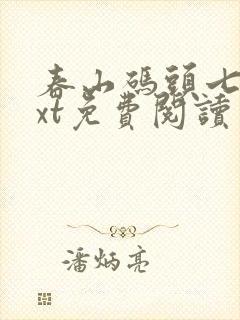 春山碼頭七
xt免費閱讀
潘炳亮